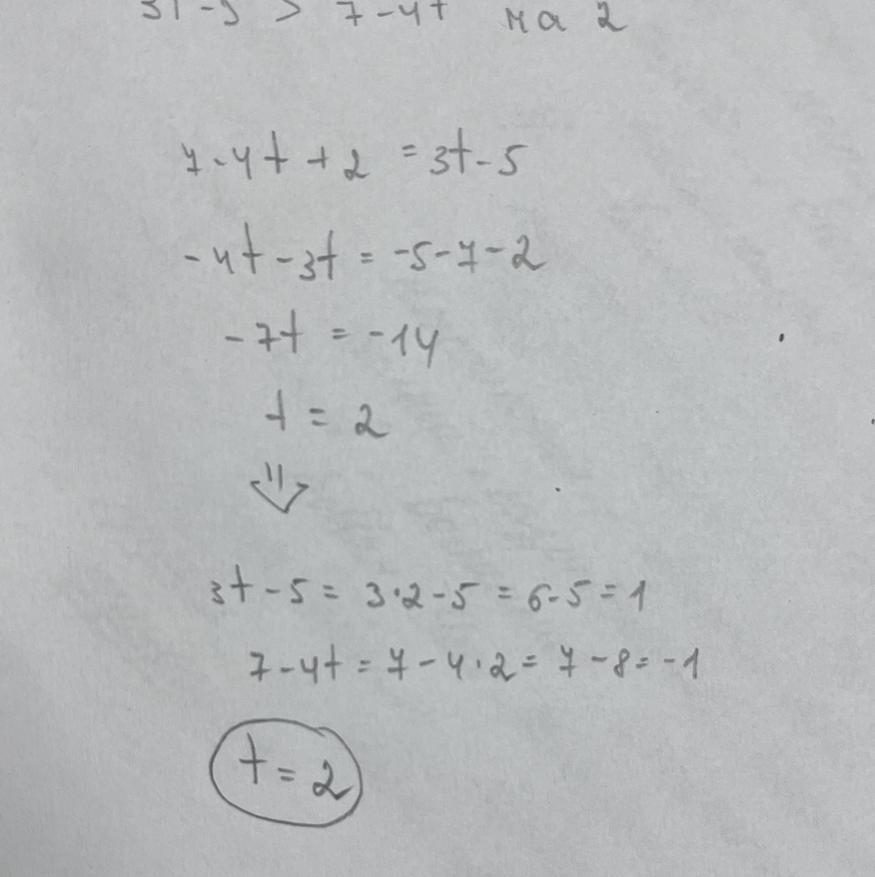 3t-5 > 7-4t на 2
7-4t+2 = 3t-5
-4t-3t = -5-7-2
-7t = -14
t = 2
⇓
3t-5 = 3·2-5 = 6-5 = 1
7-4t = 7-4·2 = 7-8 = -1
t = 2